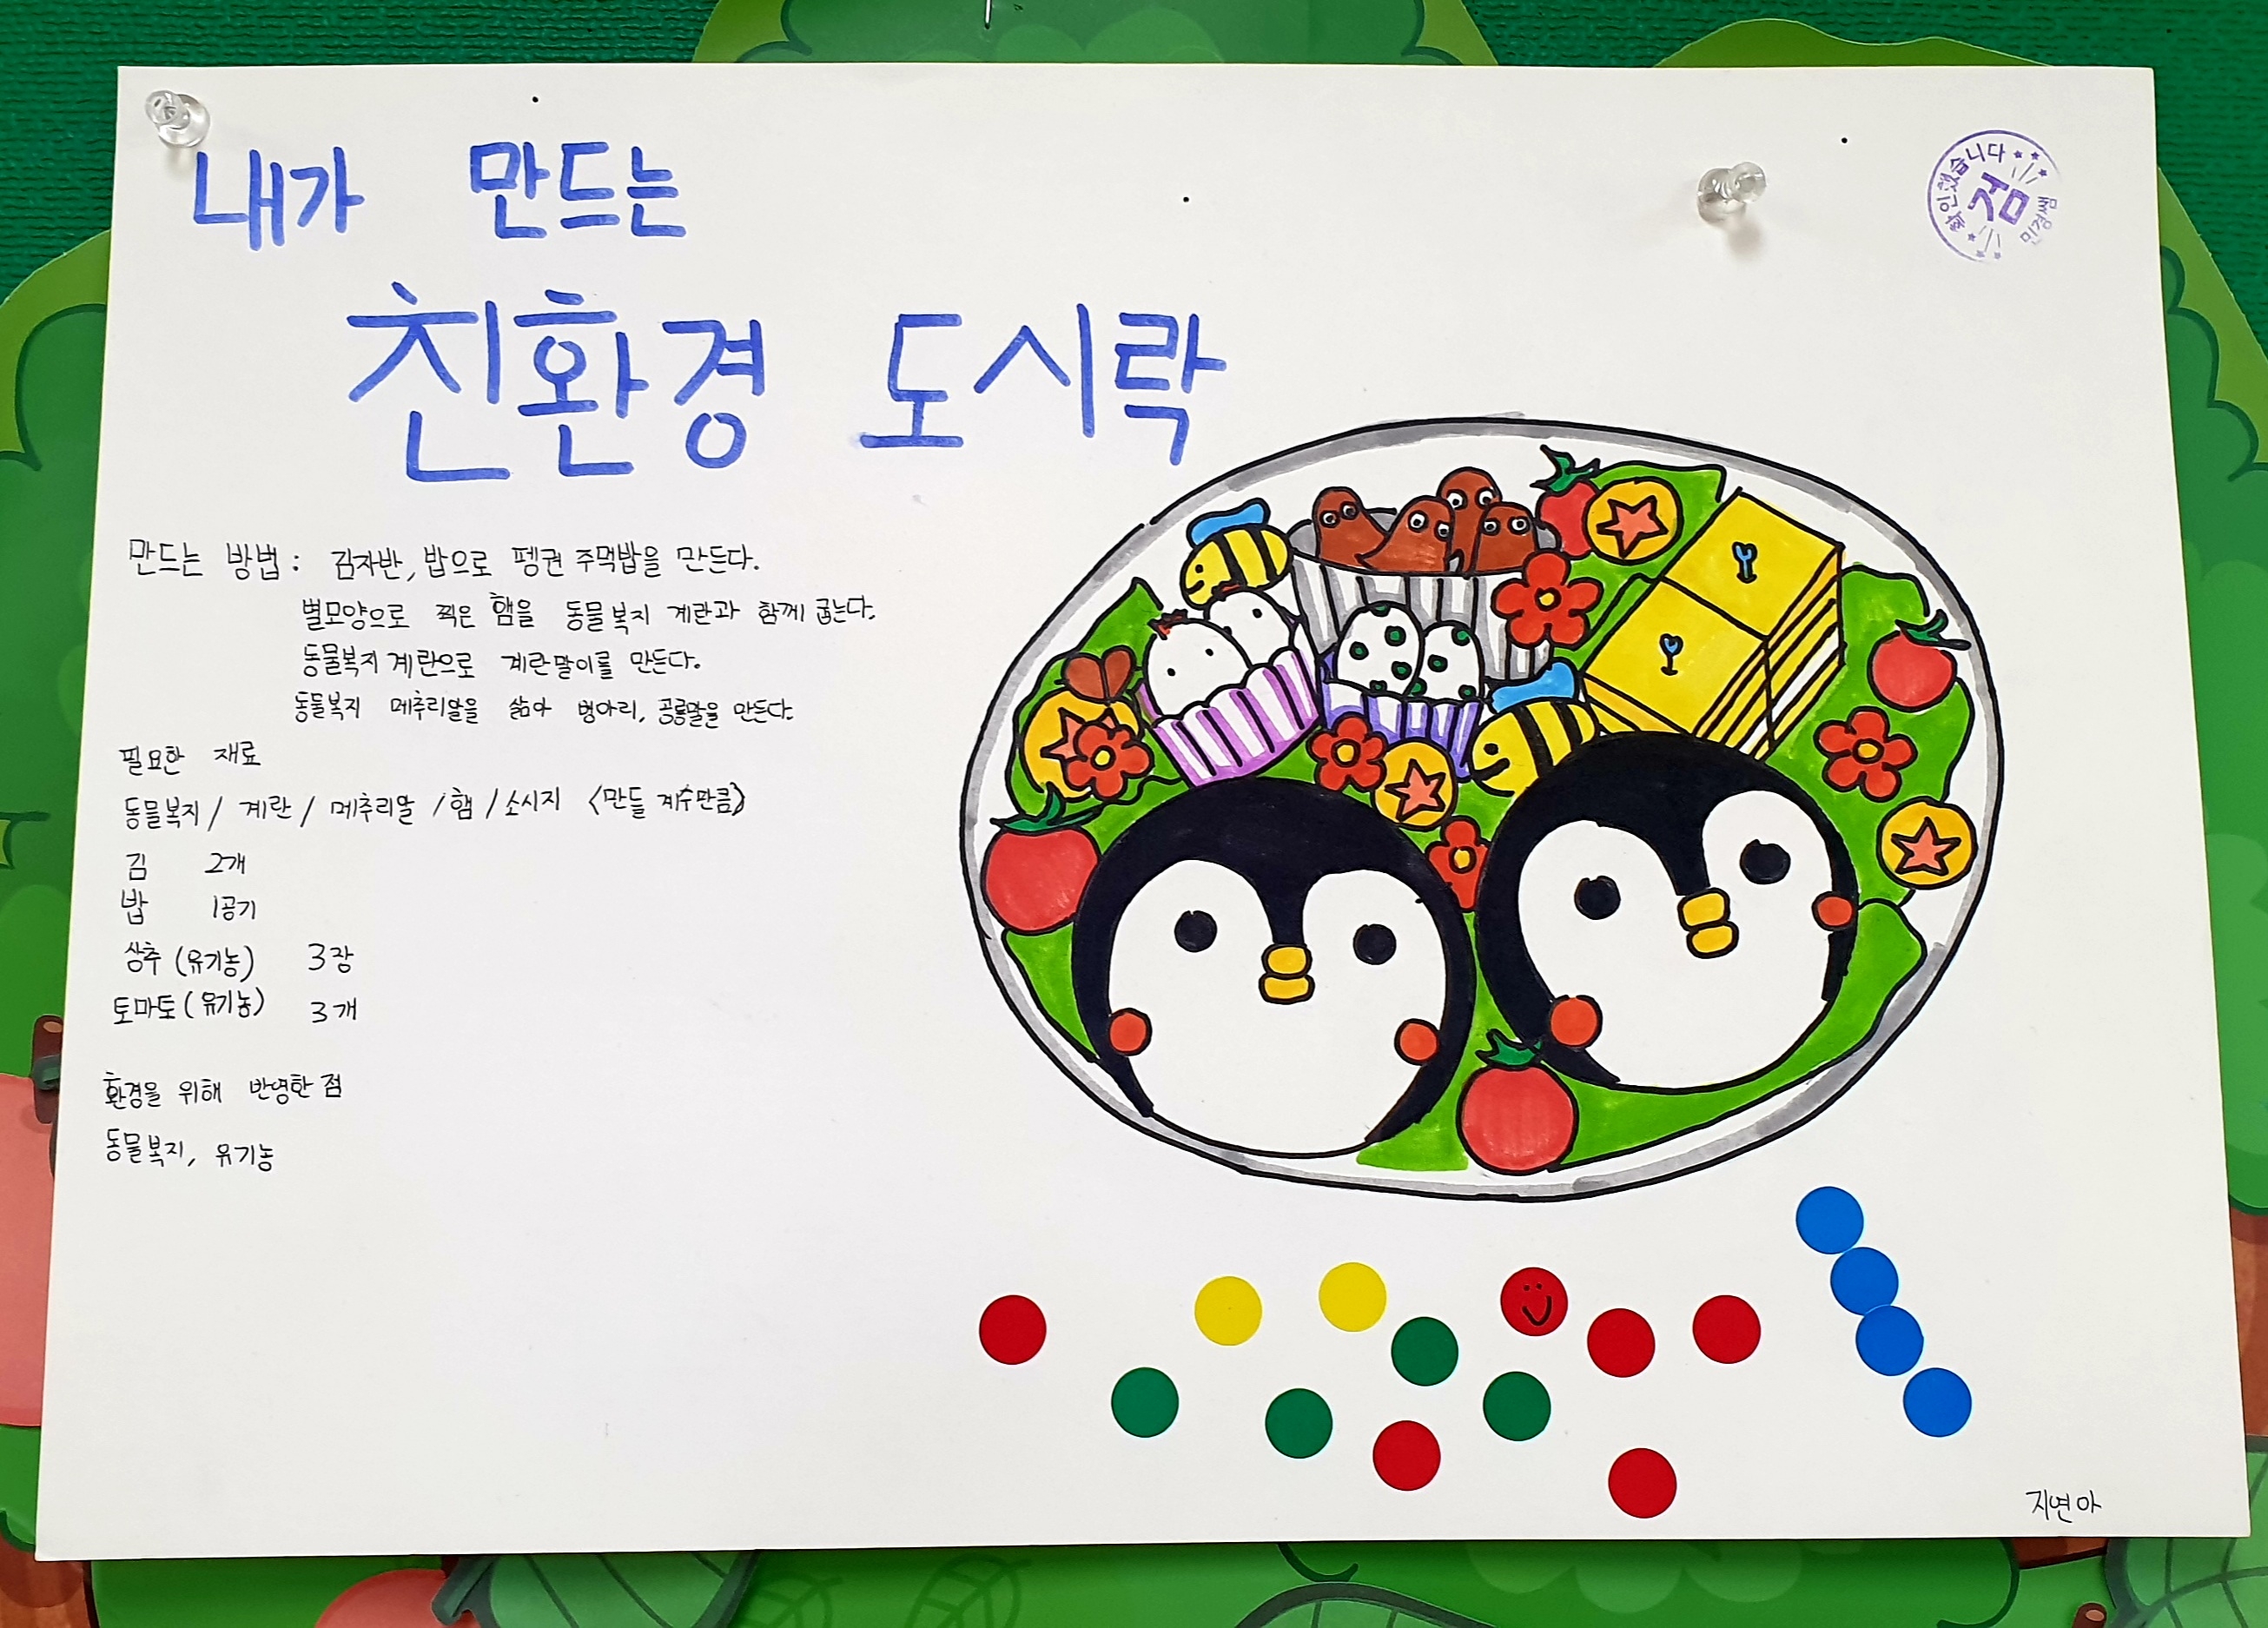 내가 만드는
친환경 도시락
확인했습니다
검
민경쌤
만드는 방법 : 김자반, 밥으로 펭귄 주먹밥을 만든다.
별모양으로 찍은 햄을 동물복지 계란과 함께 굽는다.
동물복지 계란으로 계란말이를 만든다.
동물복지 메추리알을 삶아 병아리, 공룡알을 만든다.
필요한 재료
동물복지 / 계란 / 메추리알 / 햄 / 소시지 <만들 계수만큼>
김 2개
밥 1공기
상추 (유기농) 3장
토마토 (유기농) 3개
환경을 위해 반영한 점
동물복지, 유기농
지연아